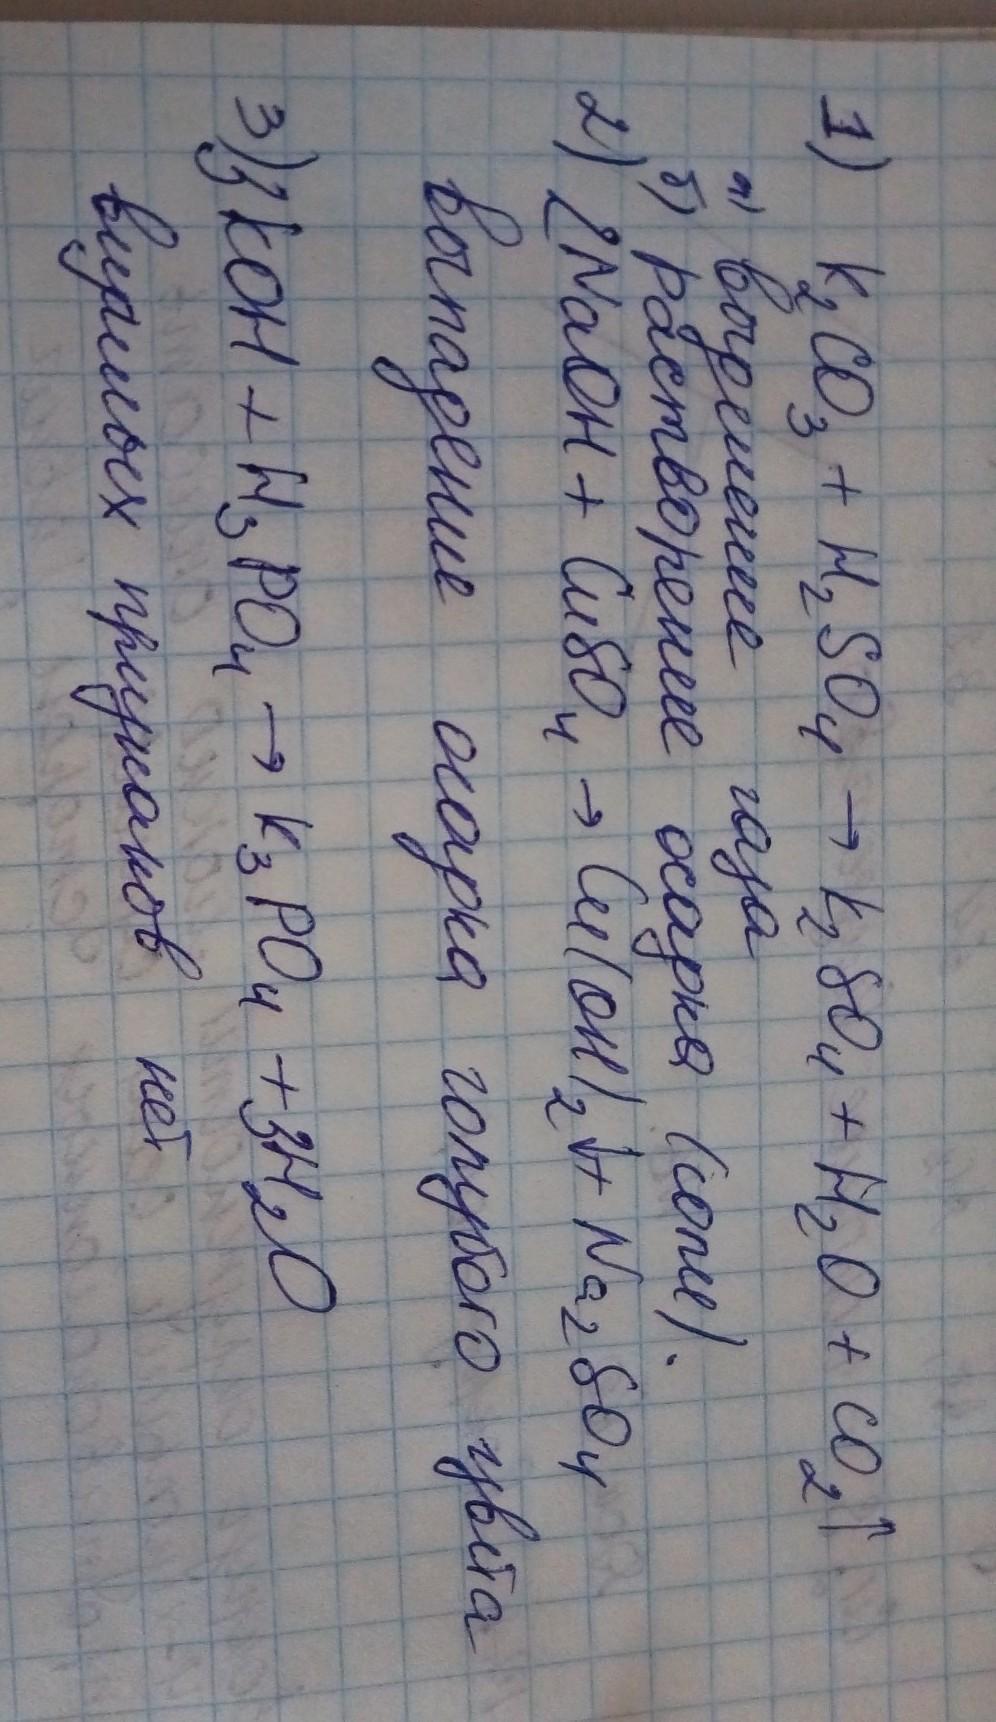 1) K₂CO₃ + H₂SO₄ → K₂SO₄ + H₂O + CO₂↑
а) выделение газа
б) растворение осадка (соли).
2) 2NaOH + CuSO₄ → Cu(OH)₂↓ + Na₂SO₄
выпадение осадка голубого цвета
3) 3KOH + H₃PO₄ → K₃PO₄ + 3H₂O
видимых признаков нет